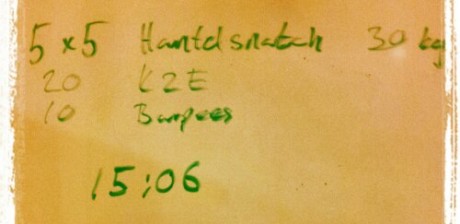 5 x 5 Hantelsnatch 30 kg
20 K2E
10 Burpees
15:06